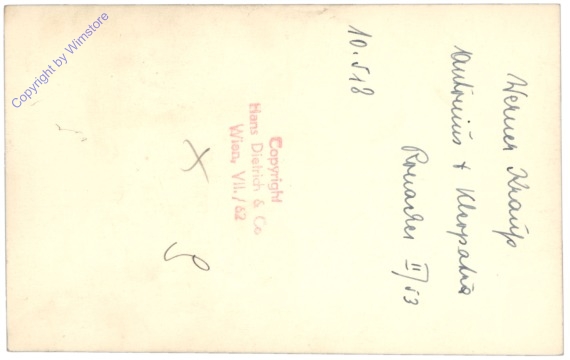 Werner Krauß
Antonius & Kleopatra
Ronacher II/53
10.518
Copyright
Hans Dietrich & Co
Wien, VII./62
Copyright by Wimstore